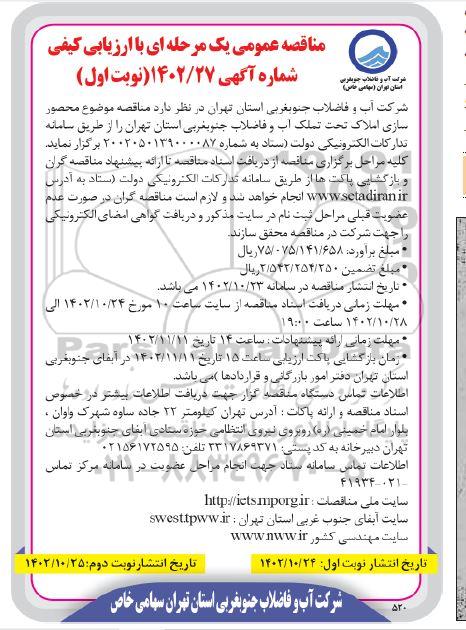 مناقصه عمومی یک مرحله ای با ارزیابی کیفی
شماره آگهی ۱۴۰۲/۲۷(نوبت اول)
شرکت آب و فاضلاب جنوبغربی
استان تهران (سهامی خاص)
شرکت آب و فاضلاب جنوبغربی استان تهران در نظر دارد مناقصه موضوع محصور
سازی املاک تحت تملک آب و فاضلاب جنوبغربی استان تهران را از طریق سامانه
تدارکات الکترونیکی دولت (ستاد به شماره ۲۰۰۲۰۵۰۱۳۹۰۰۰۰۸۷ برگزار نماید.
کلیه مراحل برگزاری مناقصه از دریافت اسناد مناقصه تا ارائه پیشنهاد مناقصه گران
و بازگشایی پاکت ها از طریق سامانه تدارکات الکترونیکی دولت (ستاد به آدرس
www.setadiran.ir انجام خواهد شد و لازم است مناقصه گران در صورت عدم
عضویت قبلی مراحل ثبت نام در سایت مذکور و دریافت گواهی امضای الکترونیکی
را جهت شرکت در مناقصه محقق سازند.
• مبلغ برآورد: ۷۵/۰۷۵/۱۴۱/۶۵۸ریال
• مبلغ تضمین ۲/۵۴۲/۲۵۴/۲۵۰ریال
• تاریخ انتشار مناقصه در سامانه ۱۴۰۲/۱۰/۲۳ می باشد.
• مهلت زمانی دریافت اسناد مناقصه از سایت ساعت ۱۰ مورخ ۱۴۰۲/۱۰/۲۴ الی
۱۴۰۲/۱۰/۲۸ ساعت ۱۹:۰۰
• مهلت زمانی ارائه پیشنهادات : ساعت ۱۴ تاریخ ۱۴۰۲/۱۱/۱۱
• زمان بازگشایی پاکت ارزیابی ساعت ۱۵ تاریخ ۱۴۰۲/۱۱/۱۱ در آبفای جنوبغربی
استان تهران دفتر امور بازرگانی و قراردادها )می باشد.
اطلاعات تماس دستگاه مناقصه گزار جهت دریافت اطلاعات بیشتر در خصوص
اسناد مناقصه و ارائه پاکات : آدرس تهران کیلومتر ۲۲ جاده ساوه شهرک واوان ،
بلوار امام خمینی (ره) روبروی نیروی انتظامی حوزه ستادی آبفای جنوبغربی استان
تهران دبیرخانه به کد پستی: ۳۳۱۷۸۶۹۳۷۱ تلفن: ۰۲۱۵۶۱۷۲۵۹۵
اطلاعات تماس سامانه ستاد جهت انجام مراحل عضویت در سامانه مرکز تماس
۴۱۹۳۴-۰۲۱
سایت ملی مناقصات : http://iets.mporg.ir
سایت آبفای جنوب غربی استان تهران : swest.tpww.ir
سایت مهندسی کشور www.nww.ir
تاریخ انتشار نوبت اول: ۱۴۰۲/۱۰/۲۴
تاریخ انتشار نوبت دوم:۱۴۰۲/۱۰/۲۵
شرکت آب و فاضلاب جنوبغربی استان تهران سهامی خاص
۵۲۰